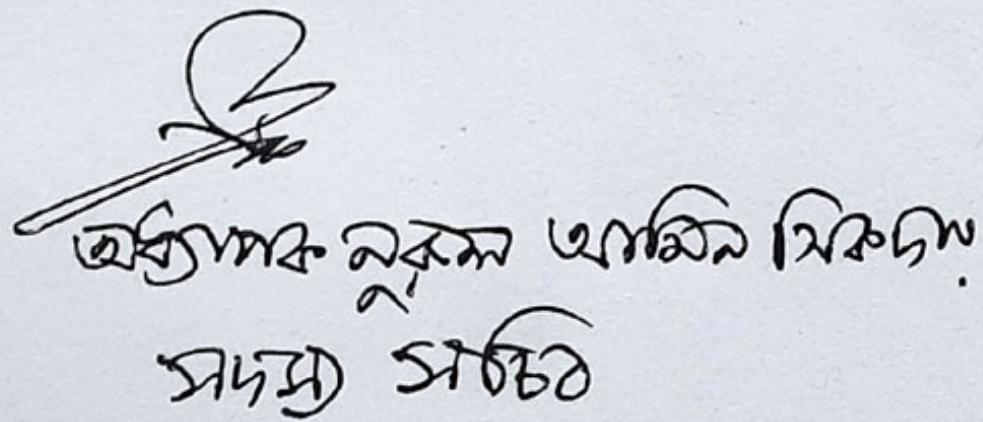 অধ্যাপক নুরুল আমিন সিকদার
সদস্য সচিব